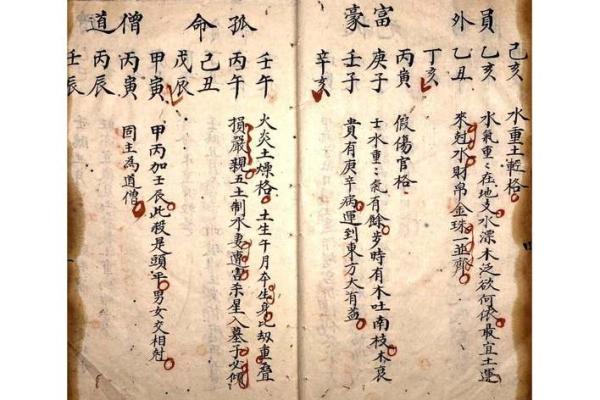 員外
己亥
乙亥
乙丑
丁亥
水重土輕格
水氣重々在地支水漂木泛欲何依最宜土運
來尅水財帛金珠一並齊
富豪
丙寅
庚子
壬子
辛亥
假傷官格
士水重々氣有餘步時有木吐南枝木衰
貴有庚辛病運到東方大有益
孤命
壬午
丙午
己丑
戊辰
火炎土燥格 土生午月卒生身比刼重叠
損嚴親五土制水妻遭害杀星入墓子必傾
僧道
甲寅
丙寅
丙辰
壬辰
甲丙加壬辰此殺是頭平男女交相尅
同主為道僧